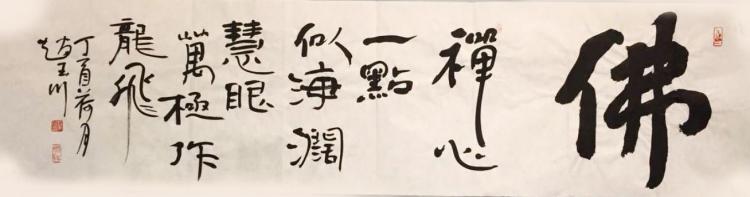 佛
禪心
一點
似海濶
慧眼
萬極作
龍飛
丁酉荷月
趙玉川